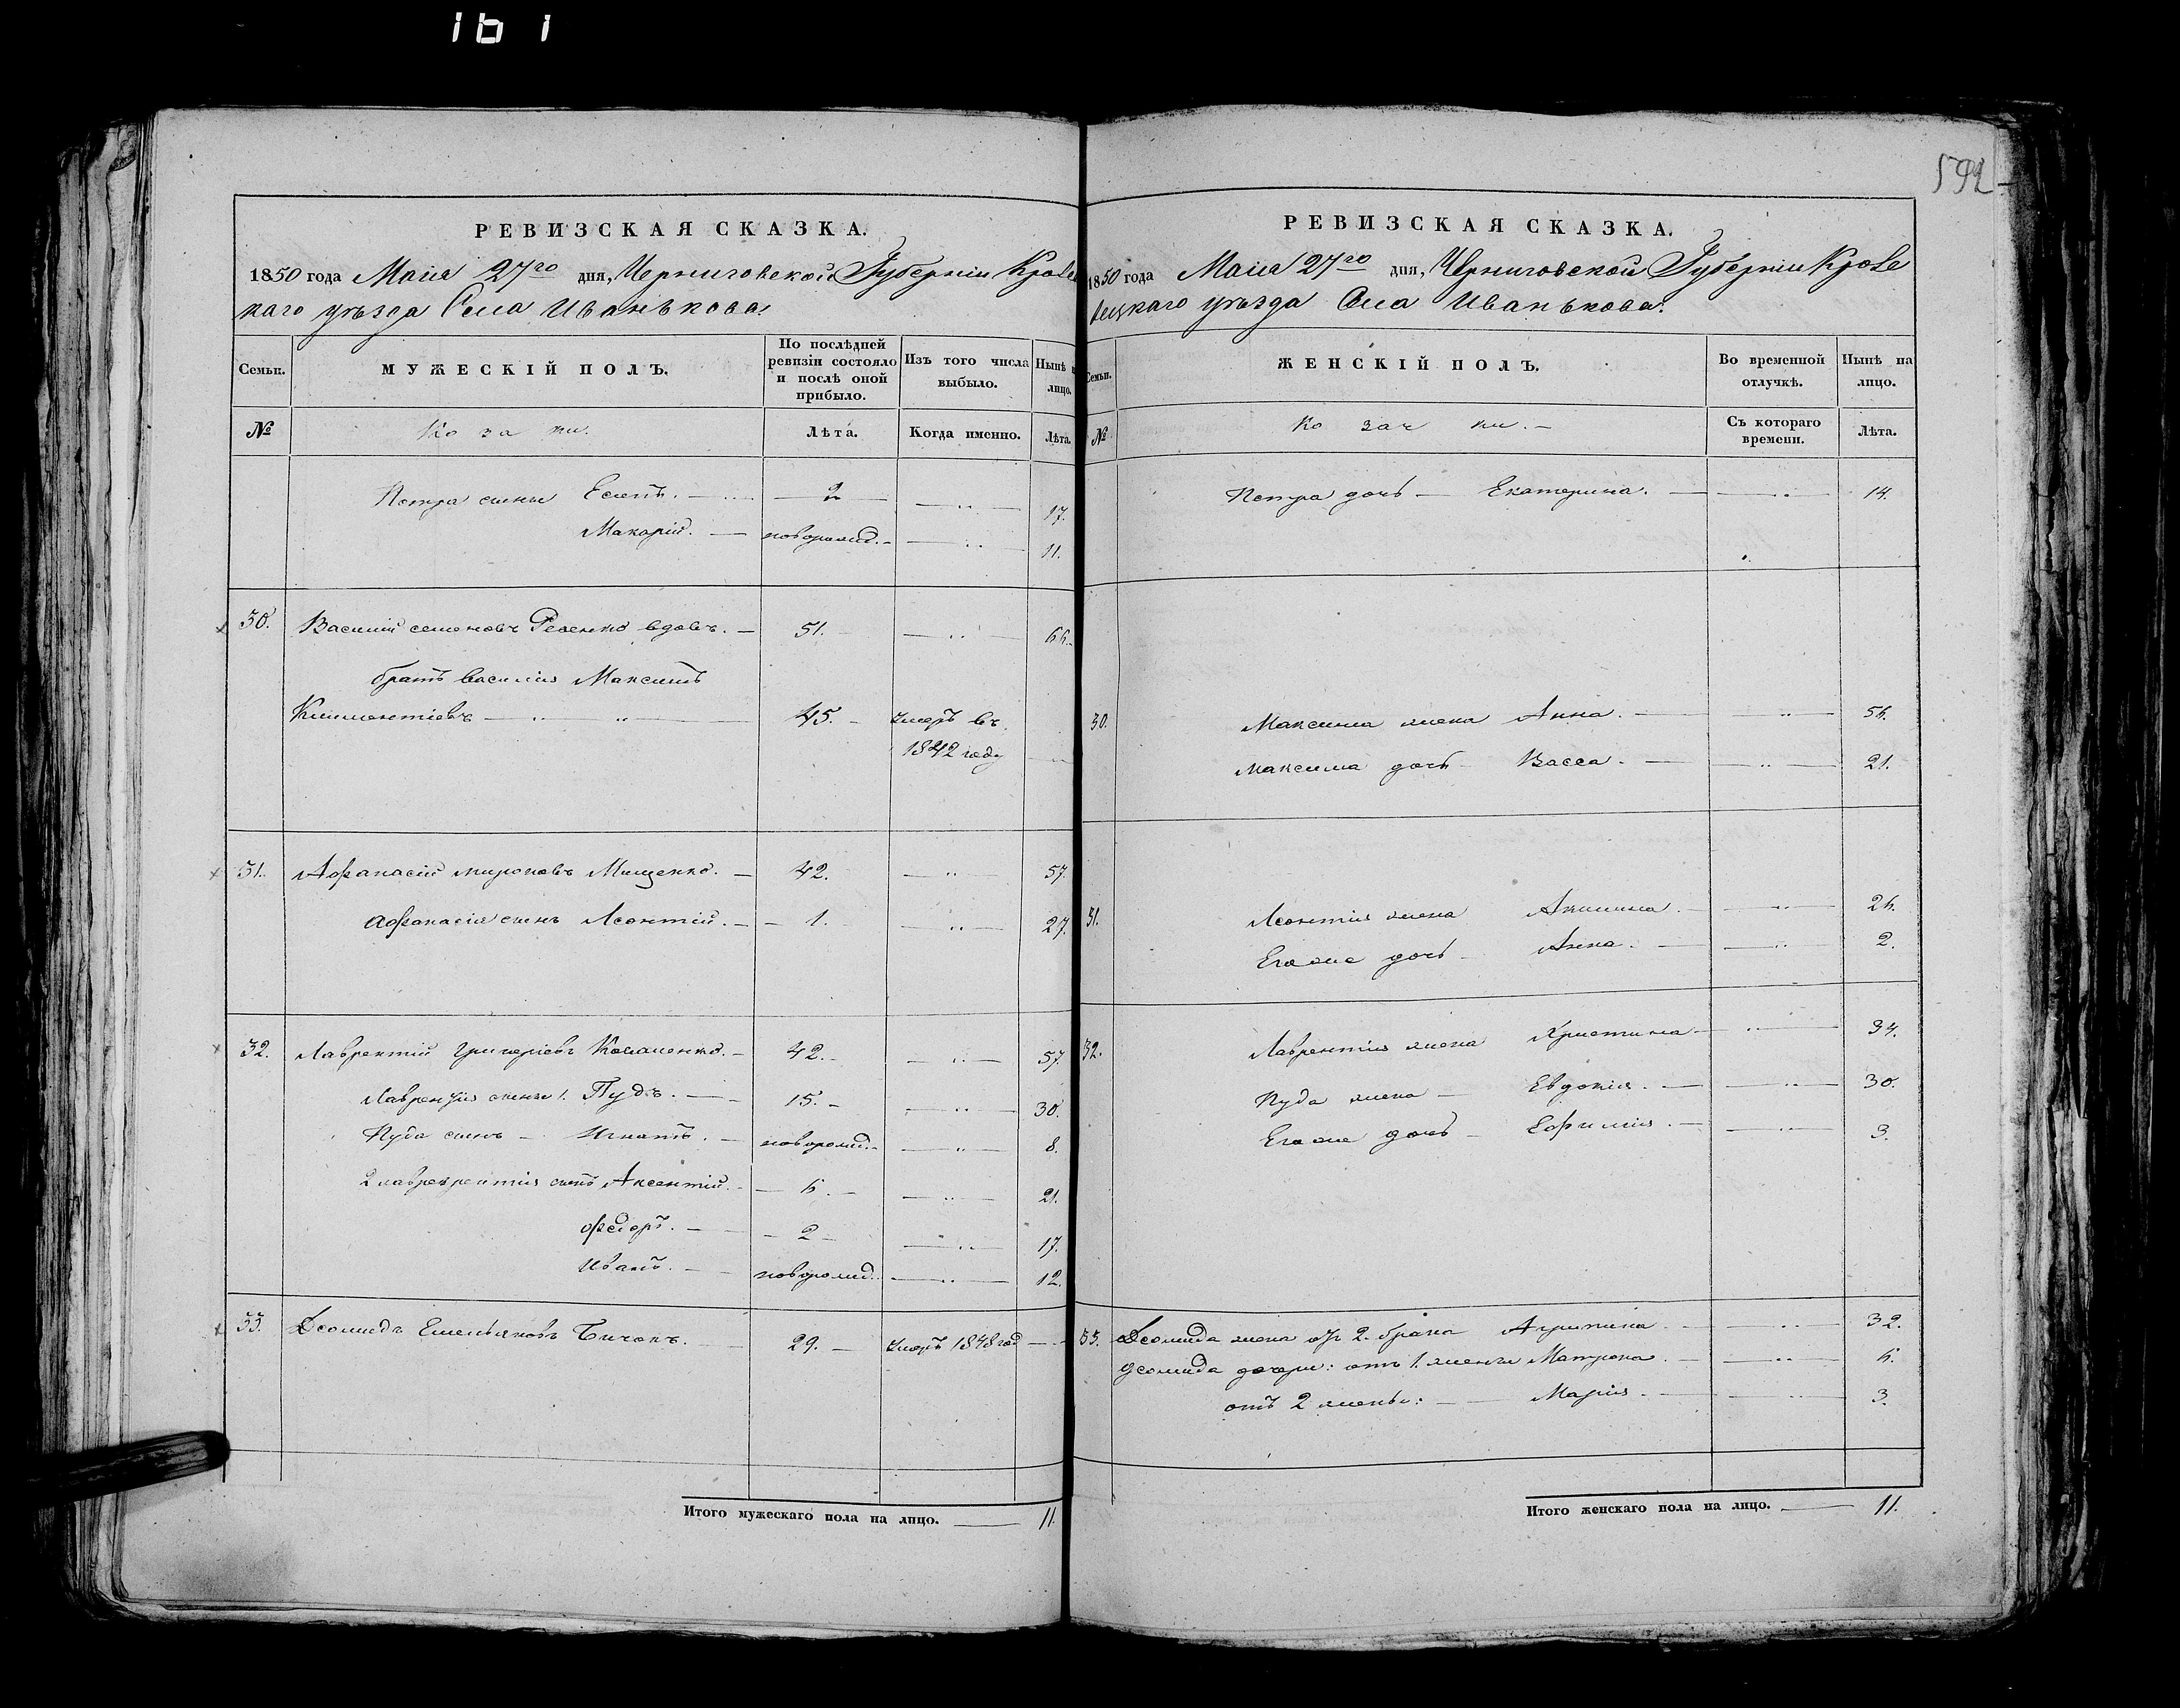 161
592
РЕВИЗСКАЯ СКАЗКА.
1850 года Маія 27го дня, Черниговской Губерніи Кролев
каго уѣзда Села Иванькова:
Семьи.
МУЖЕСКІЙ ПОЛЪ.
По послѣдней ревизіи состояло и послѣ оной прибыло.
Изъ того числа выбыло.
Нынѣ на лицо.
№
Козаки.
Лѣта.
Когда именно.
Лѣта.
Петра сыны Есипъ. 2 17.
Макарій. новорожд. 11.
30. Василій семеновъ вдовъ. 51. 66.
братъ василія Максимъ
Климентіевъ 45. умеръ въ
1842 году
31. Афанасій мироновъ Мищенко. 42. 57.
афанасія сынъ Леонтій. 1. 27.
32. Лаврентій григоріевъ 42. 57.
сыны 1. Пудъ. 15. 30.
Пуда сынъ Игнатъ. новорожд. 8.
2 сынъ Аксентій. 6. 21.
Федоръ. 2 17.
Иванъ. новорожд. 12.
33. Деомидъ Емельяновъ Бичокъ. 29. умеръ 1848 год
Итого мужескаго пола на лицо. 11.
РЕВИЗСКАЯ СКАЗКА.
1850 года Маія 27го дня, Черниговской Губерніи Кроле
вецкаго уѣзда Села Иванькова:
Семьи.
ЖЕНСКІЙ ПОЛЪ.
Во временной отлучкѣ.
Нынѣ на лицо.
№
Козачки.
Съ котораго времени.
Лѣта.
Петра дочь Екатерина. 14.
30. Максима жена Анна. 56.
Максима дочь Васса. 21.
31. Леонтія жена Акилина. 26.
Его же дочь Анна. 2.
32. Лаврентія жена Христина 34.
Пуда жена Евдокія. 30.
Его же дочь Ефимія. 3.
33. Деомида жена отъ 2. брака Агрипина 32.
Деомида дочери: отъ 1. жены Матрона. 6.
отъ 2 жены: Марія. 3.
Итого женскаго пола на лицо. 11.